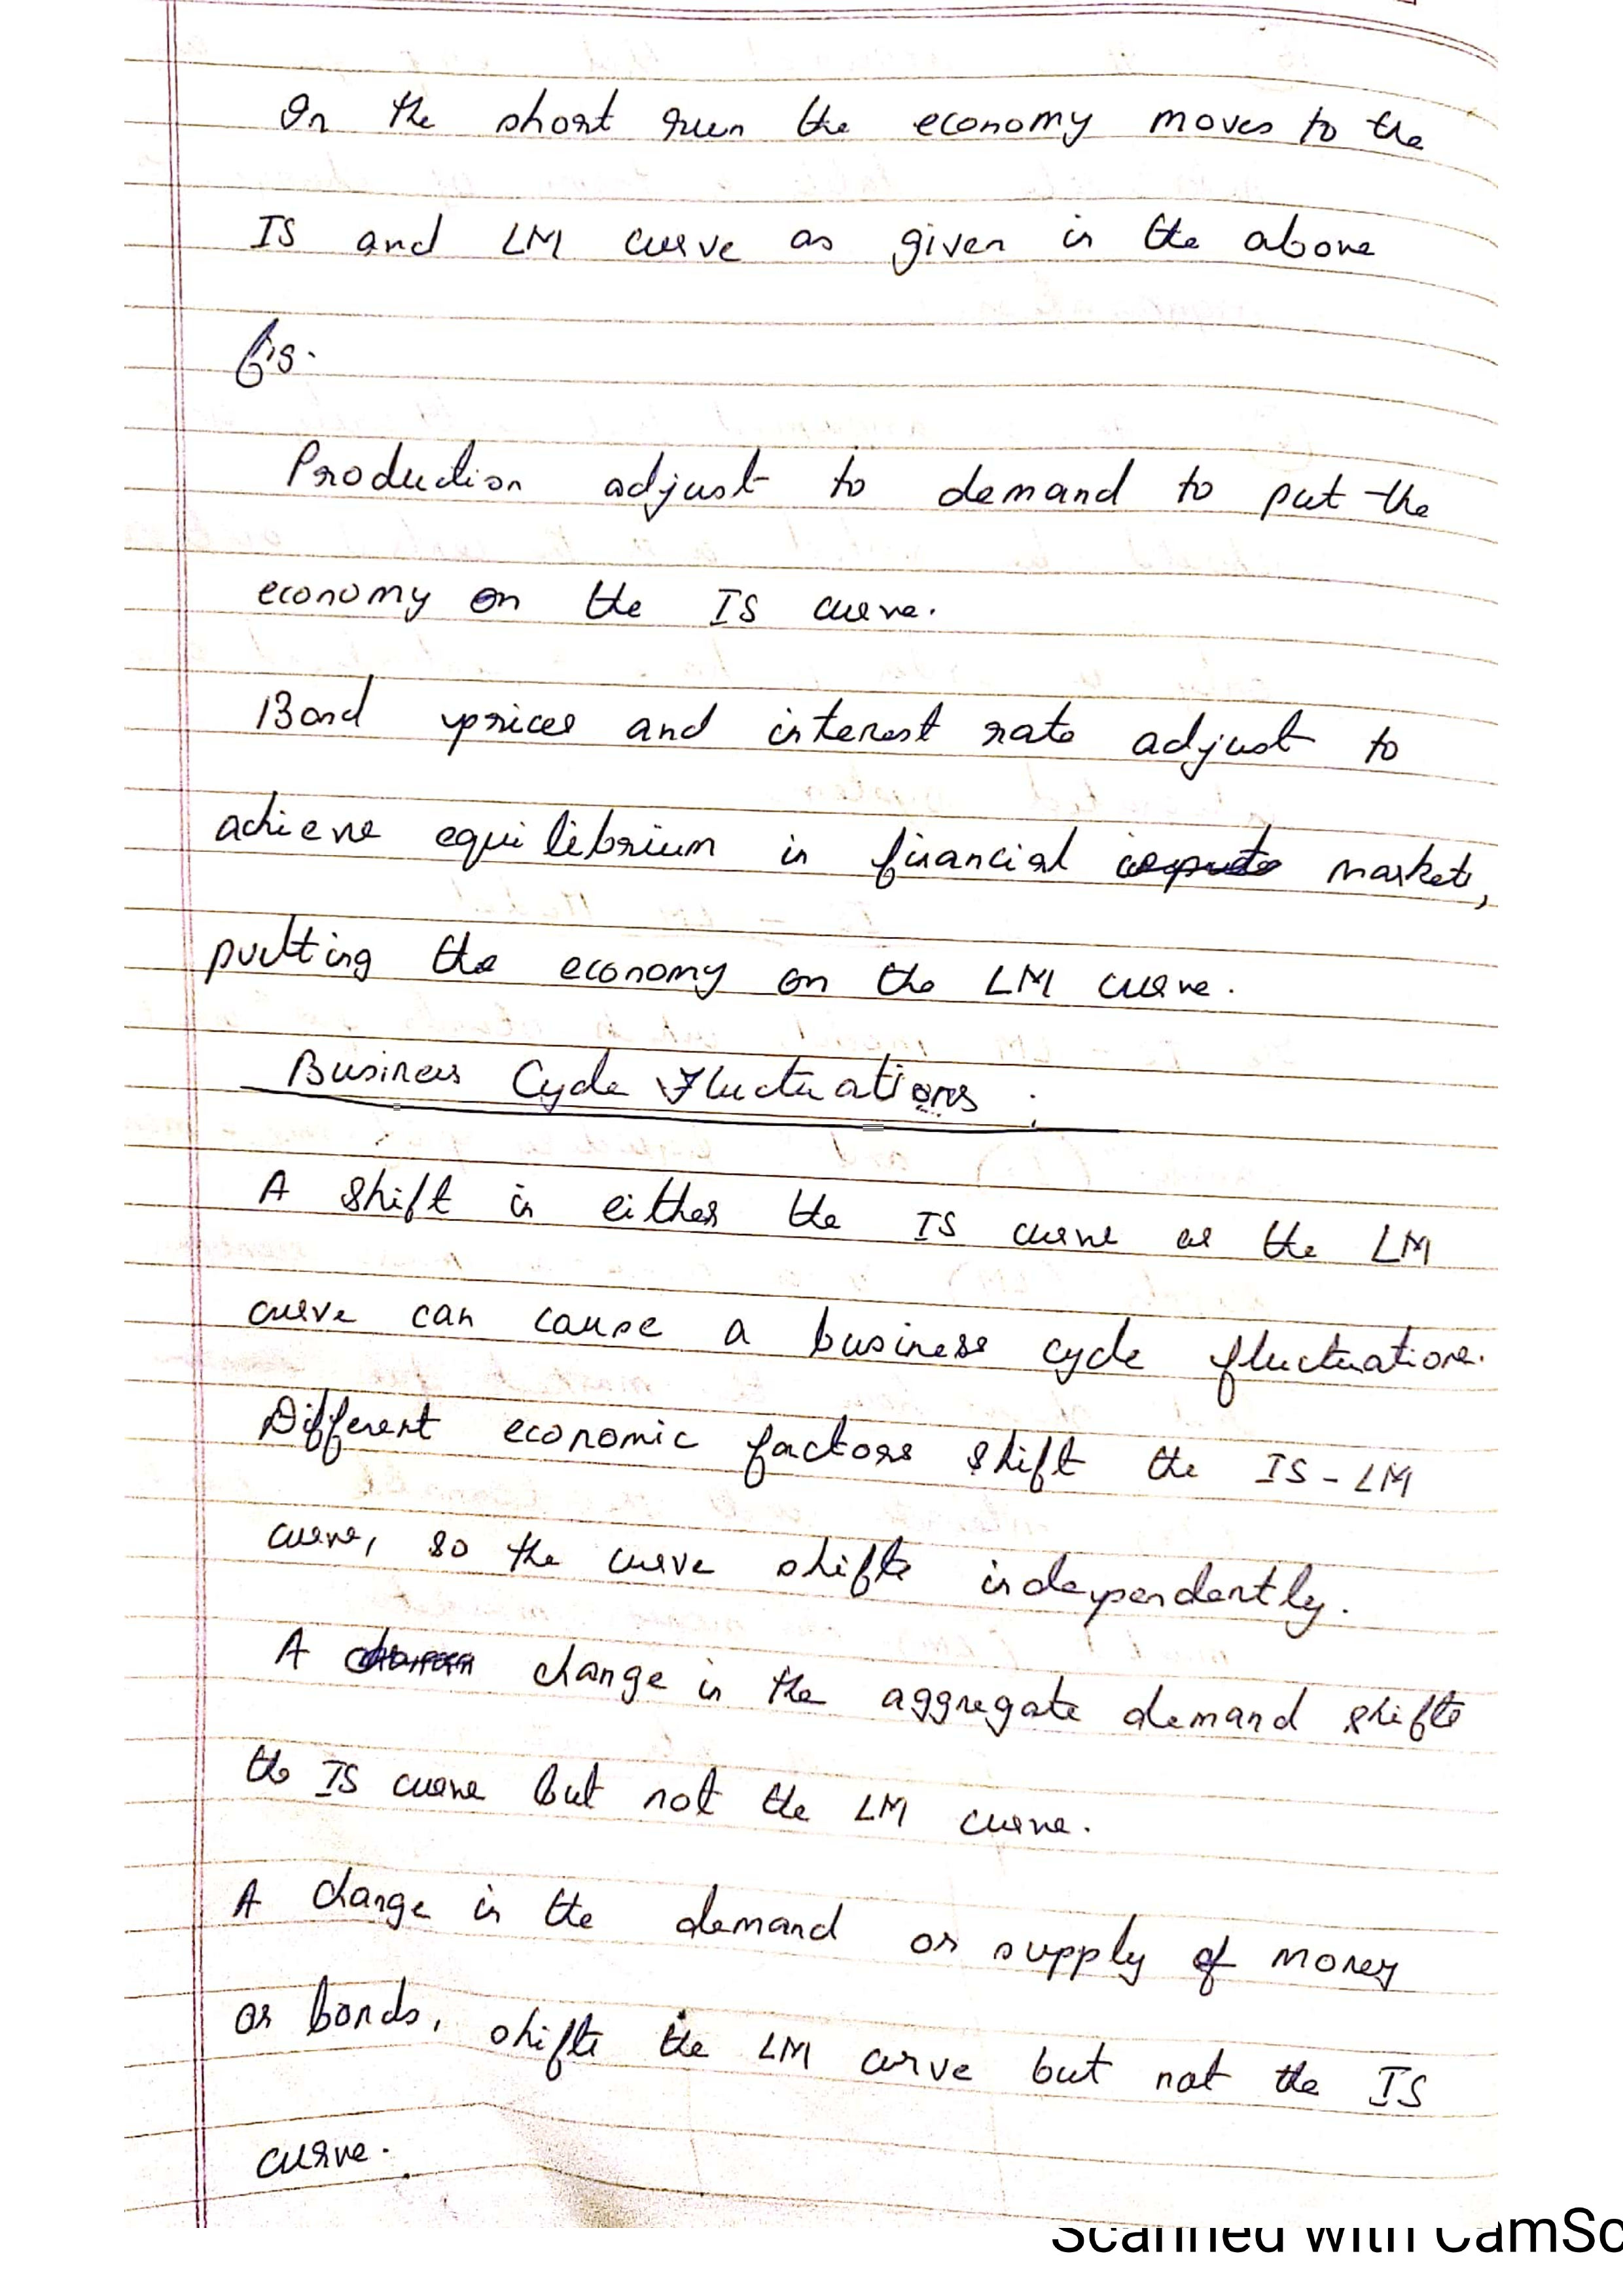 In the short run the economy moves to the
IS and LM curve as given in the above
fig.
Production adjust to demand to put the
economy on the IS curve.
Bond prices and interest rate adjust to
achieve equilibrium in financial market,
putting the economy on the LM curve.
Business Cycle Fluctuations :
A shift in either the IS curve or the LM
curve can cause a business cycle fluctuations.
Different economic factors shift the IS-LM
curve, so the curve shifts independently.
A change in the aggregate demand shifts
the IS curve but not the LM curve.
A change in the demand or supply of money
or bonds, shifts the LM curve but not the IS
curve.
Scanned with CamSc